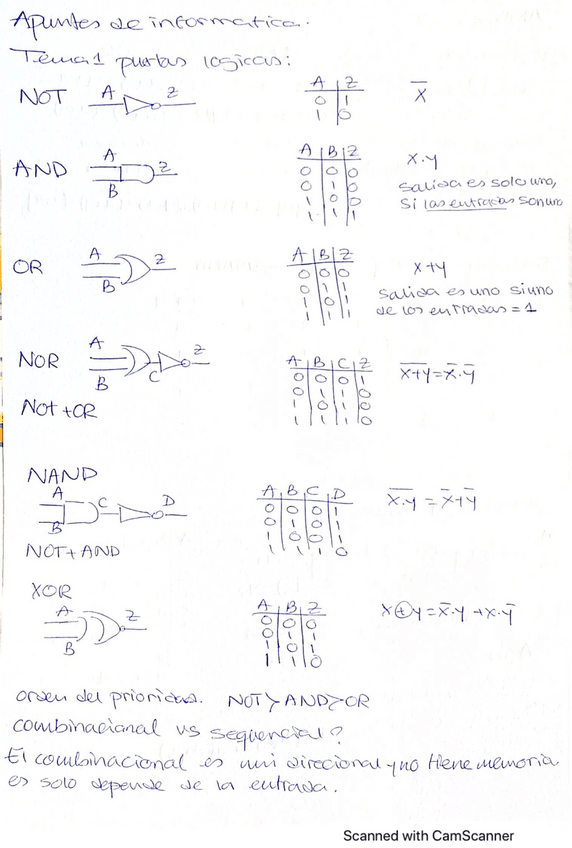 Apuntes de informatica.
Tema 1 puertas logicas:
NOT A Z
A Z
0 1
1 0
X̅
AND A B Z
A B Z
0 0 0
0 1 0
1 0 0
1 1 1
X.y
Salida es solo uno,
si las entradas son uno
OR A B Z
A B Z
0 0 0
0 1 1
1 0 1
1 1 1
x+y
salida es uno si uno
de los entradas = 1
NOR A B C Z
Not + OR
A B C Z
0 0 0 1
0 1 1 0
1 0 1 0
1 1 1 0
X̅+̅y̅ = x̅.y̅
NAND
A B C D
NOT + AND
A B C D
0 0 0 1
0 1 0 1
1 0 0 1
1 1 1 0
X̅.̅y̅ = x̅+y̅
XOR
A B Z
A B Z
0 0 0
0 1 1
1 0 1
1 1 0
X⊕y = x̅.y + x.y̅
orden del prioridad. NOT > AND > OR
combinacional vs sequencial?
El combinacional es uni direcional y no tiene memoria
es solo depende de la entrada.
Scanned with CamScanner